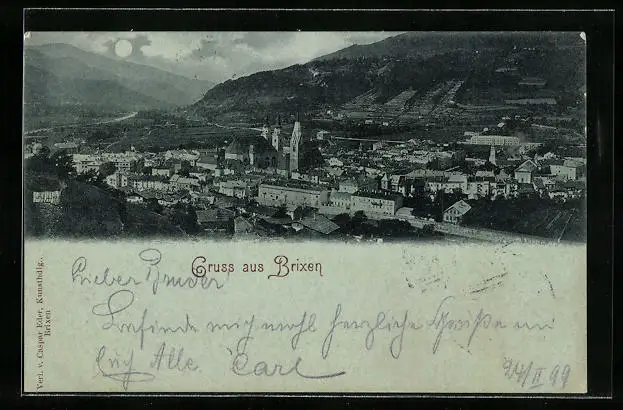 Gruss aus Brixen
Lieber Bruder
Befinde mich wohl herzliche Grüße an
Euch Alle Carl
24/II 99
Verl. v. Caspar Eder, Kunsthdlg.
Brixen